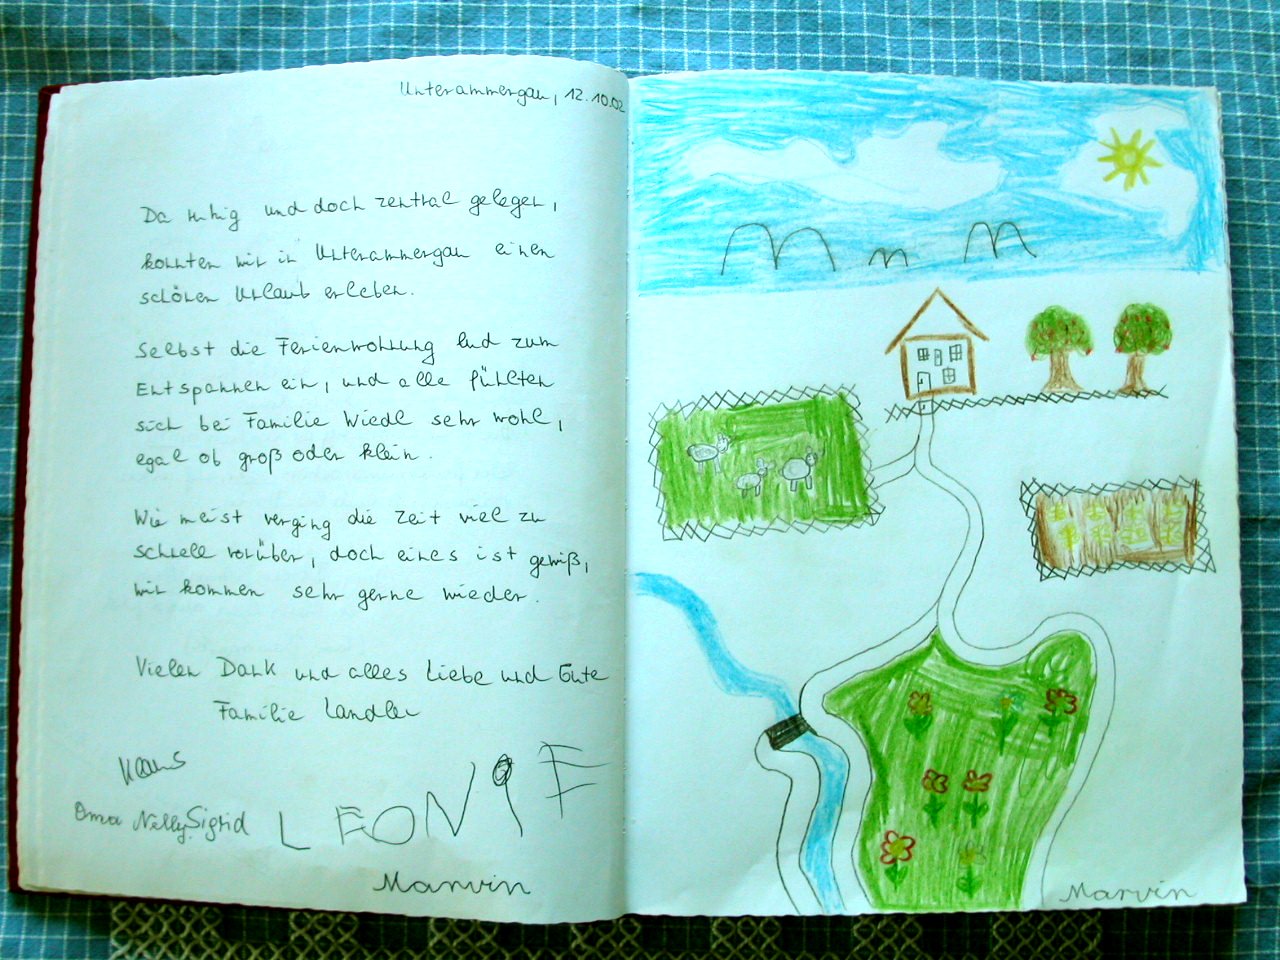 Unterammergau, 12.10.02
Da ruhig und doch zentral gelegen,
konnten wir in Unterammergau einen
schönen Urlaub erleben.
Selbst die Ferienwohnung lud zum
Entspannen ein, und alle fühlten
sich bei Familie Wiedl sehr wohl,
egal ob groß oder klein.
Wie meist verging die Zeit viel zu
schnell vorüber, doch eines ist gewiß,
wir kommen sehr gerne wieder.
Vielen Dank und alles Liebe und Gute
Familie Landler
Klaus
Oma Nelly Sigrid LEONIE
Marvin
Marvin